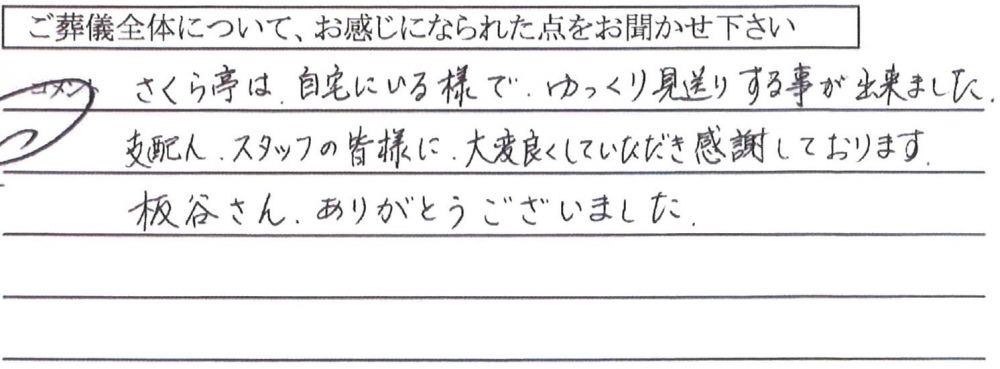 ご葬儀全体について、お感じになられた点をお聞かせ下さい
コメント さくら亭は、自宅にいる様で、ゆっくり見送りする事が出来ました。
支配人、スタッフの皆様に、大変良くしていただき感謝しております。
板谷さん、ありがとうございました。